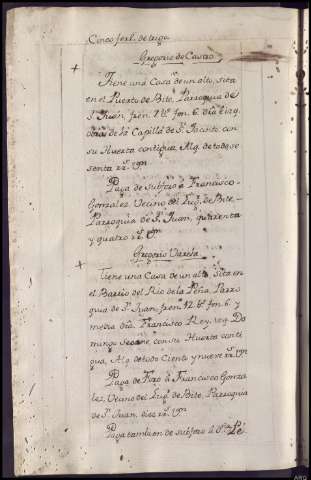 Cinco ferl. de trigo
Gregorio do Castro
+ Tiene una Casa de un alto, sita
en el Puerto de Bite, Parroquia de
S.n Juan, fren. 7 b.s fon. 6. dra
dra de la Capilla de S.n Jacinto con
su Huerta contigua, Alq. de todo se
senta rr.s vn
Paga de Subforo à Francisco
Gonzalez Vecino del Lug.r de Bite
Parroquia de S.n Juan, quarenta
y quatro rr.s vn
Gregorio Varela
+ Tiene una Casa de un alto sita en
el Barrio del Rio de la Peña, Parro
quia de S.n Juan, fren. 12 b.s fon. 6. y
media dra. Francisco Rey, izq. Do
mingo Seoane, con su Huerta conti
gua, Alq. de todo Ciento y nueve rr.s vn
Paga de Foro à Francisco Gonza
lez, Vecino del Lug.r de Bite, Parroquia
de S.n Juan, diez rr.s vn
Paga tambien de subforo à